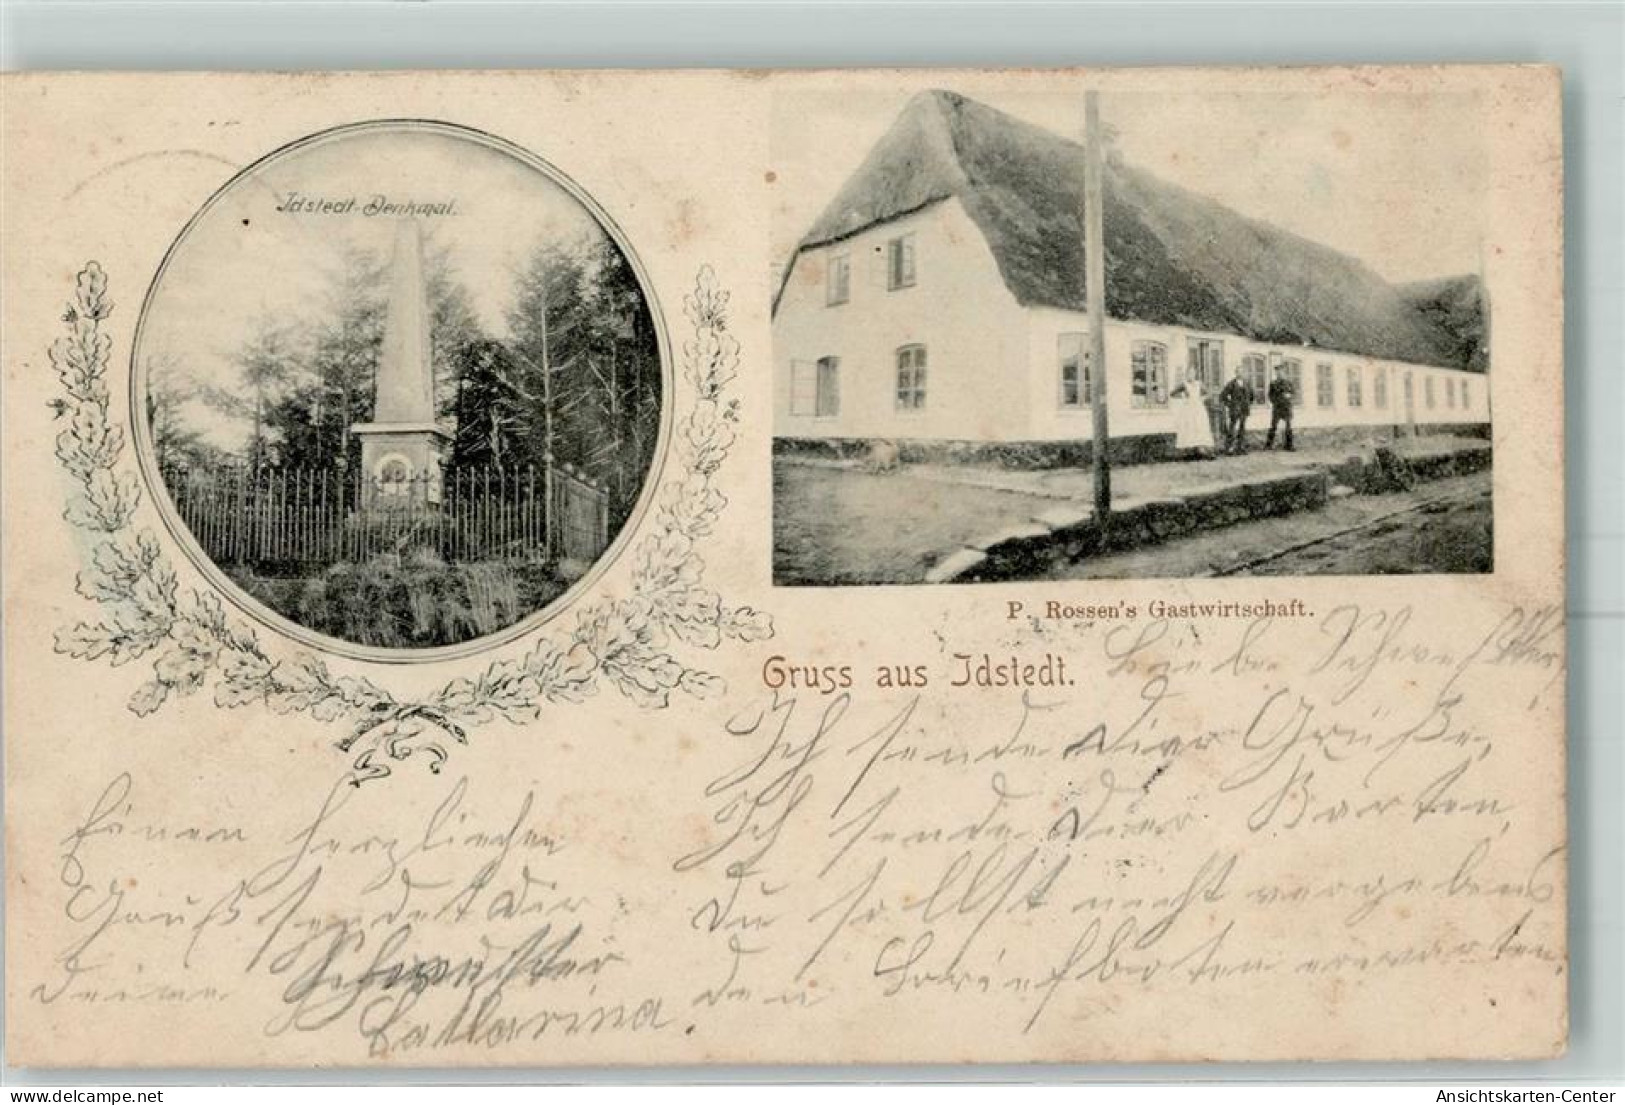 Idstedt-Denkmal.
P. Rossen's Gastwirtschaft.
Gruss aus Idstedt.
Liebe Schwester,
Ich sende Dir Grüße,
Ich sende Dir Karten,
Du sollst nicht vergebens
den Briefboten erwarten.
Einen herzlichen
Gruß sendet Dir
deine Schwester
Catharina.
delcampe.net
Ansichtskarten-Center